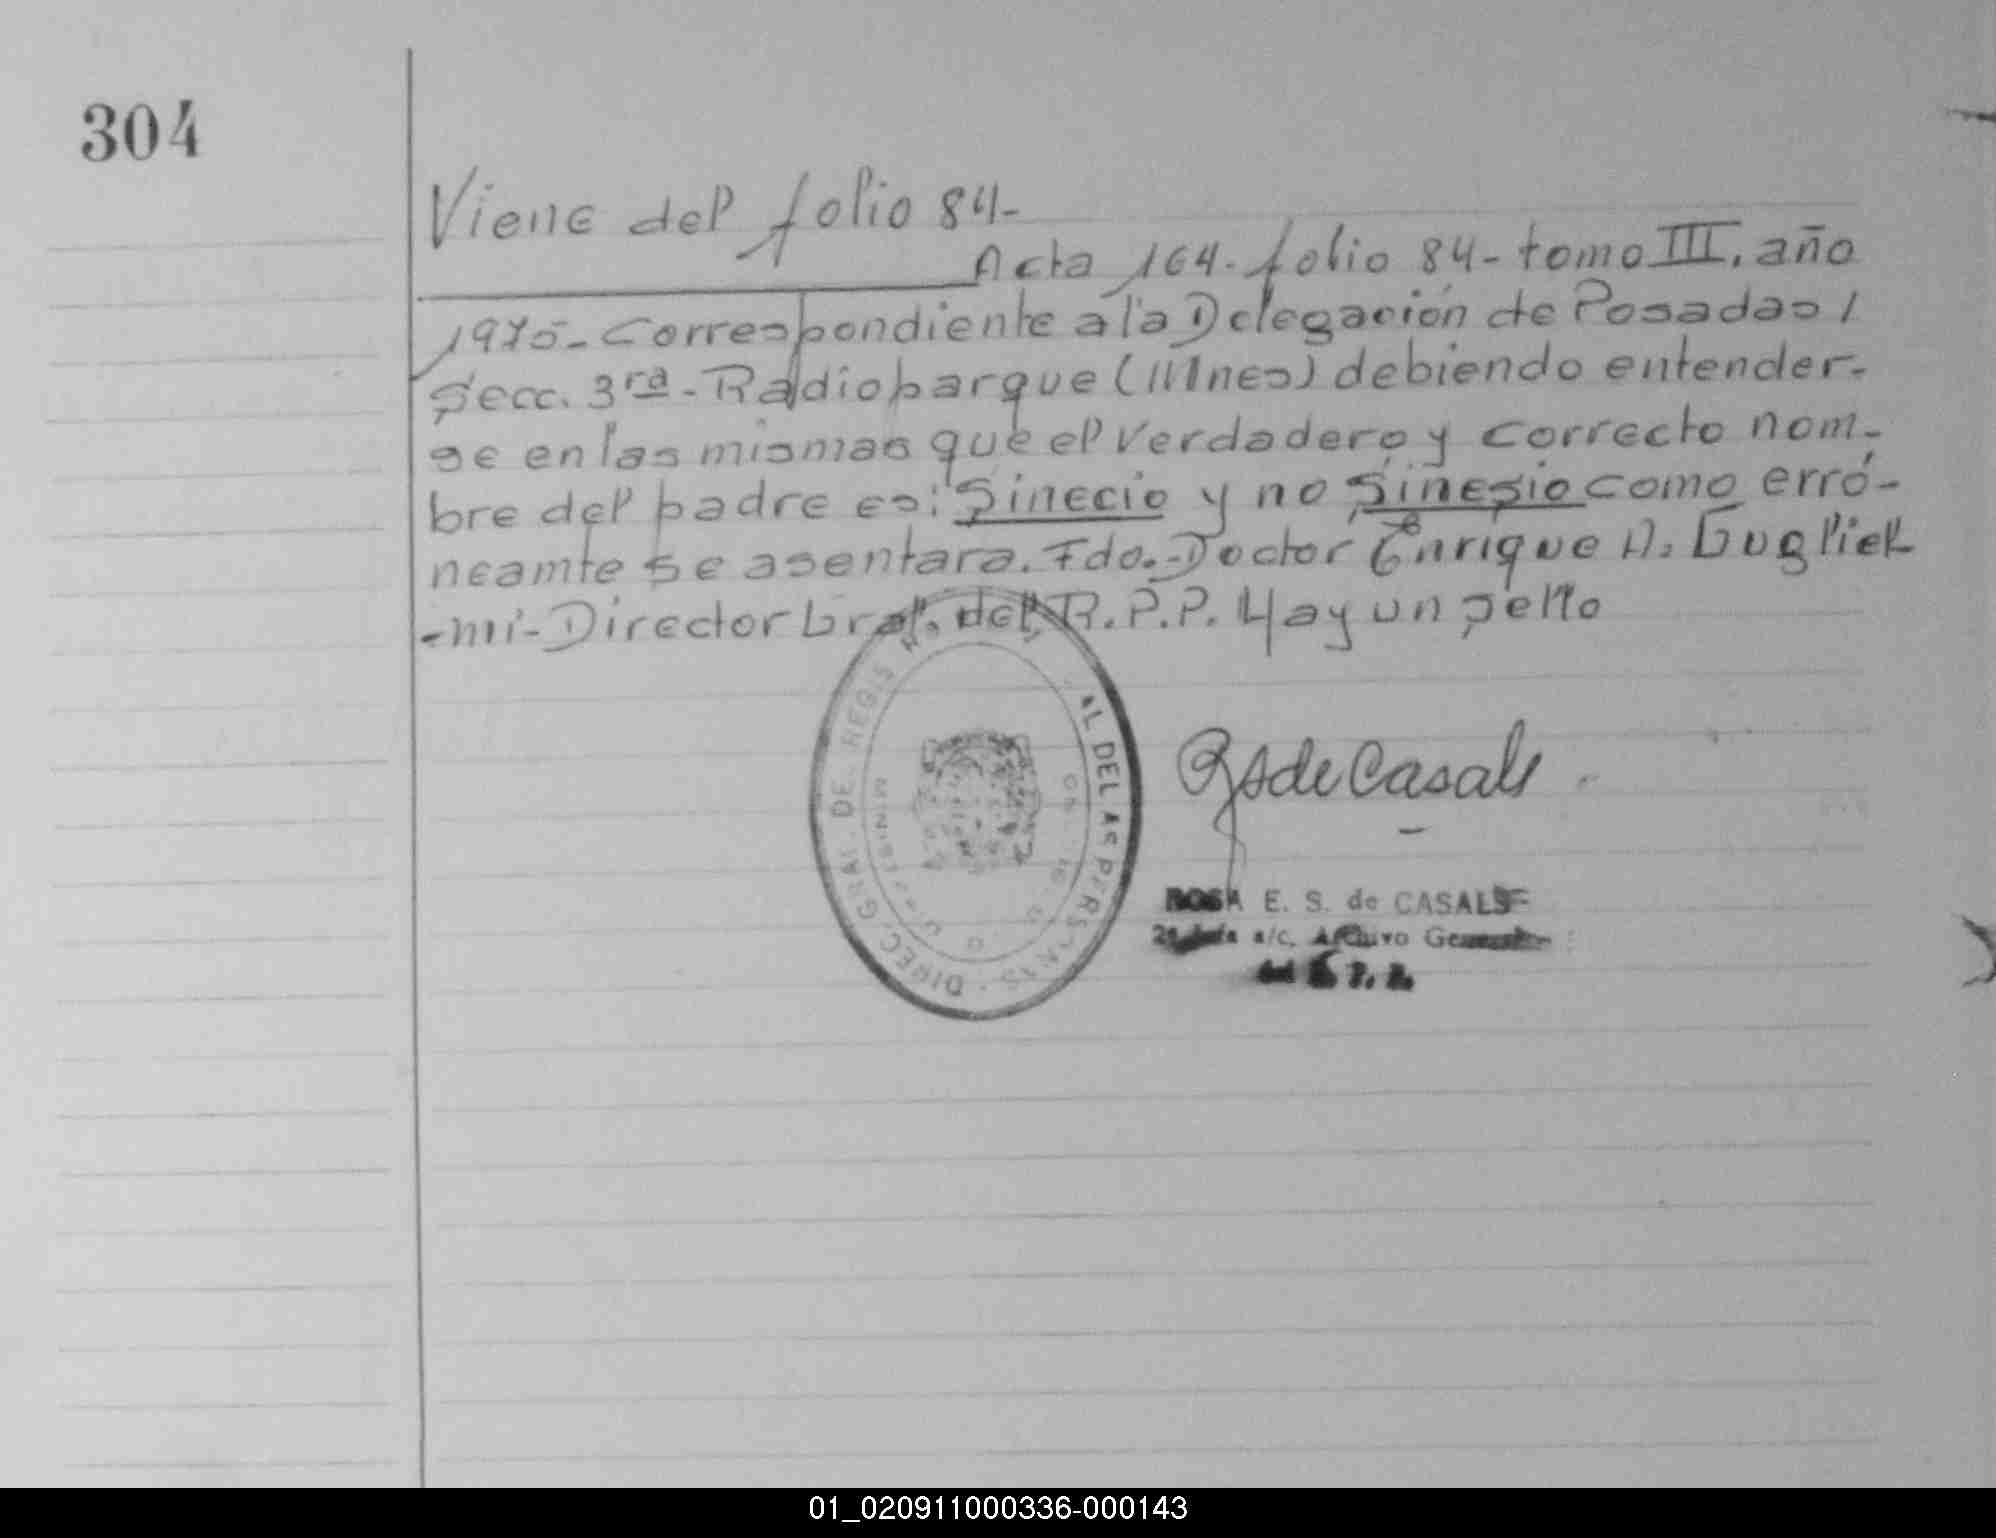 304
Viene del folio 84-
Acta 164. folio 84- tomo III, año
1975- Correspondiente a la Delegación de Posadas /
Secc. 3ra - Radioparque (Mnes) debiendo entender-
se en las mismas que el verdadero y correcto nom-
bre del padre es: Sinecio y no Sinesio como erró-
neamte se asentara. Fdo.- Doctor Enrique A. Gugliel
-mi- Director Gral. del R.P.P. Hay un sello
RS de Casals
DIREC. GRAL. DE REGIS AL DE LAS PERSONAS
ROSA E. S. de CASALS
a/c. Archivo General
01_020911000336-000143